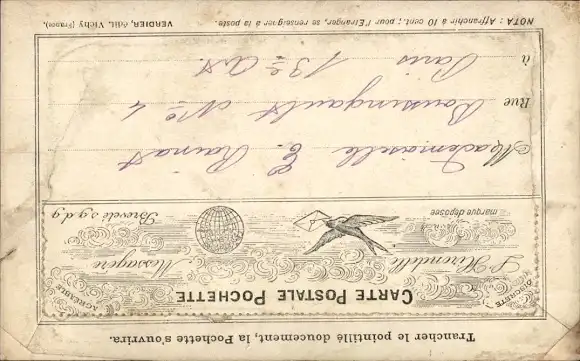 Trancher le pointillé doucement, la Pochette s'ouvrira.
DISCRÈTE
CARTE POSTALE POCHETTE
AGRÉABLE
L'Hirondelle Messagère
marque déposée
Breveté s.g.d.g
Mademoiselle E.
Rue Boussingault No 4
à Paris 13e Art.
NOTA : Affranchir à 10 cent. ; pour l'Étranger, se renseigner à la poste.
VERDIER, édit. Vichy (France).